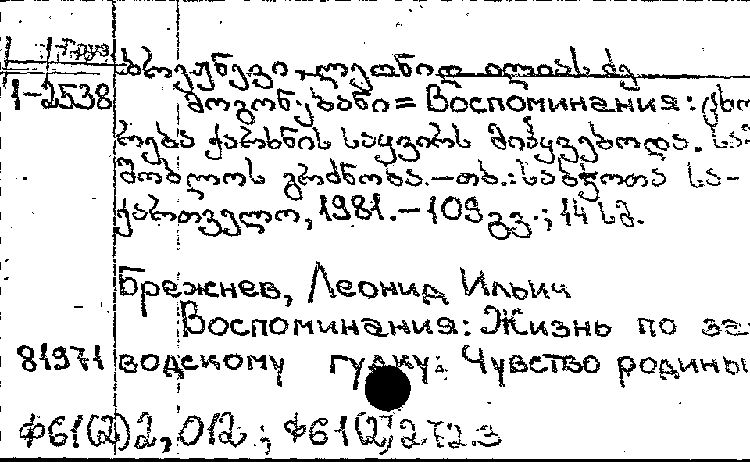 Груз.
ბრეჟნევი, ლეონიდ ილიას ძე
1-2538 მოგონებანი = Воспоминания: ცხო
რება ქარხნის საყვირს მიჰყვებოდა. სამ
შობლოს გრძნობა.—თბ.: საბჭოთა სა-
ქართველო, 1981.—109 გვ.; 14 სმ.
Брежнев, Леонид Ильич
Воспоминания: Жизнь по за-
81971 водскому гудку; Чувство родины
Ф61(2)2,012.; Ф61(2)272.3